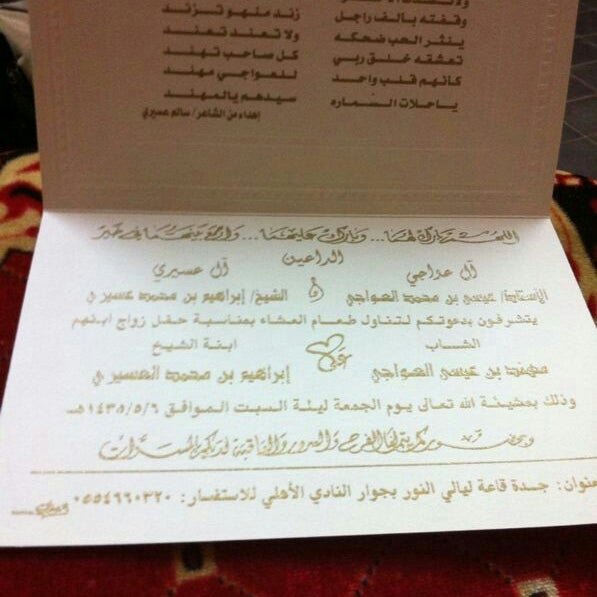 زند منهو تزند
وقفته بألف راجل
ولا تعند تعند
ينثر الحب ضحكه
كل صاحب تهند
تعشقه خلق ربي
للعواجي مهند
كأنهم قلب واحد
سيدهم يالمهند
ياحلات السماره
إهداء من الشاعر/ سالم عسيري
اللهم بارك لهما... وبارك عليهما... واجمع بينهما في خير
الداعين
آل عواجي
آل عسيري
الأستاذ/ عيسى بن محمد العواجي
و
الشيخ/ إبراهيم بن محمد عسيري
يتشرفون بدعوتكم لتناول طعام العشاء بمناسبة حفل زواج ابنهم
الشاب
على
ابنة الشيخ
مهند بن عيسى العواجي
إبراهيم بن محمد العسيري
وذلك بمشيئة الله تعالى يوم الجمعة ليلة السبت الموافق ١٤٣٥/٥/٦هـ
وبحضوركم يتم لنا الفرح والسرور والعاقبة لديكم بالمسرات
عنوان: جدة قاعة ليالي النور بجوار النادي الأهلي للاستفسار: ٠٥٥٤٦٦٠٣٢٠